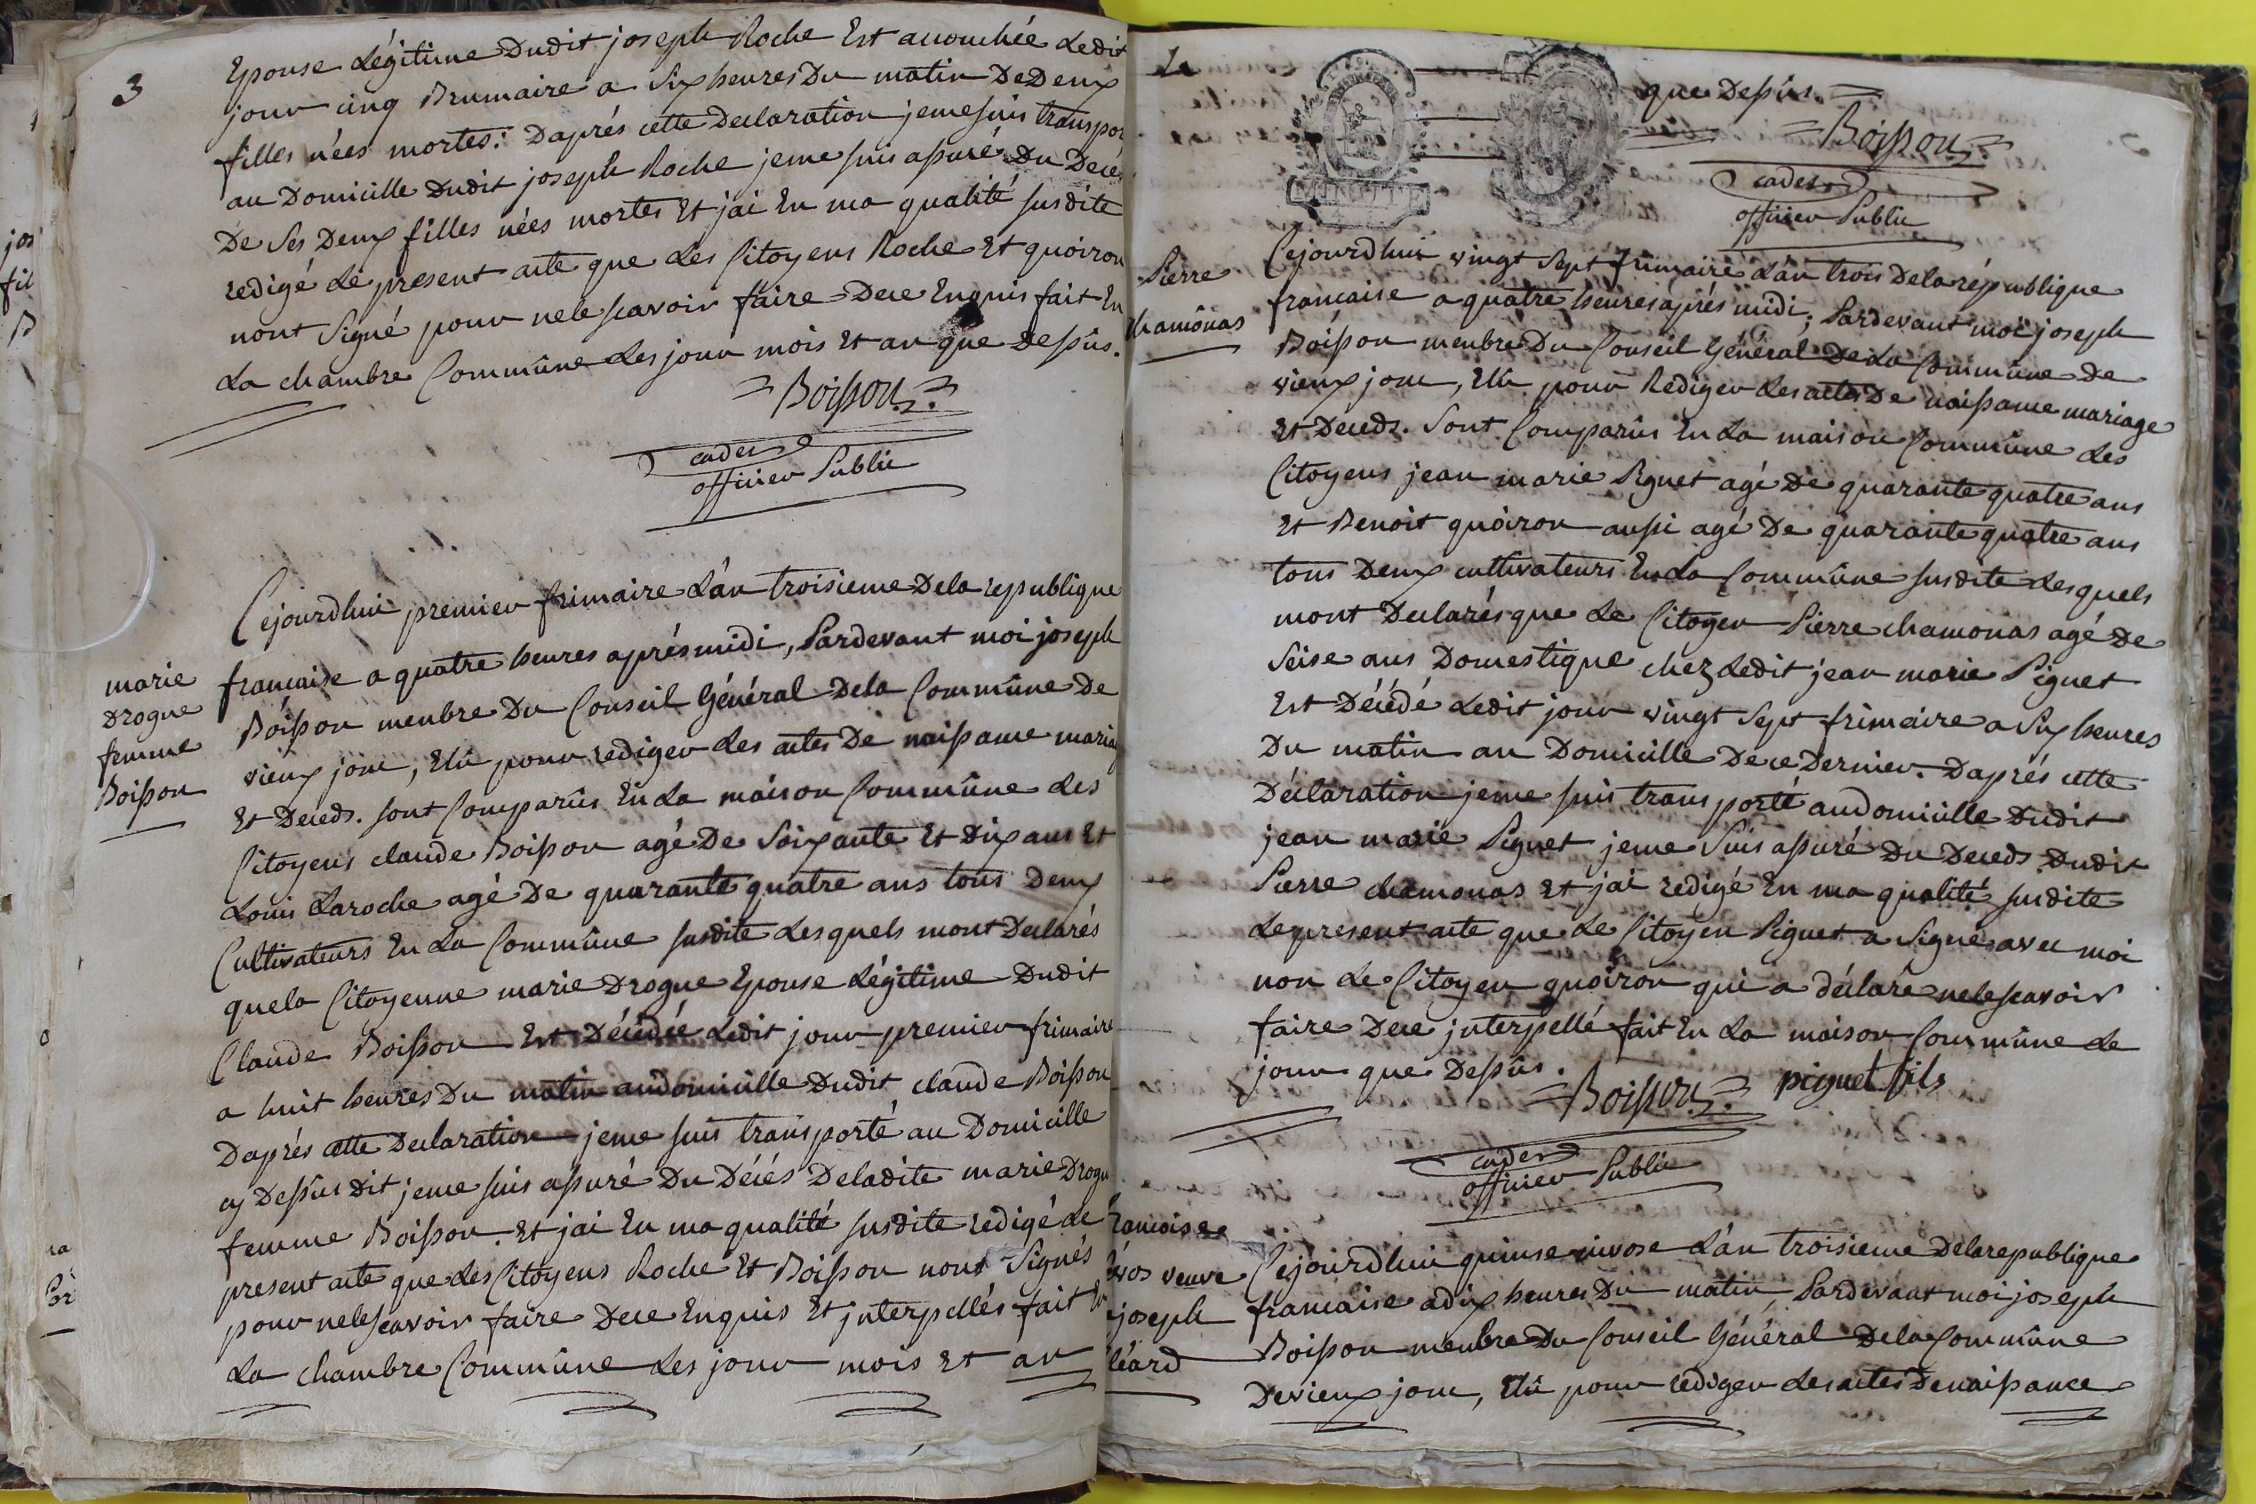 3
Epouse Légitime Dudit joseph Roche Est acouchée Ledit
jour cinq Brumaire a Six heures Du matin De Deux
filles nées mortes. Daprés cette Declaration jeme suis transpor
au Domicille Dudit joseph Roche jeme suis assuré Du Decé
De Ses Deux filles nées mortes Et jai En ma qualité susdite
redigé Le present acte que Les Citoyens Roche Et quoiron
nont Signé pour nele scavoir faire Dece Enquis fait En
La chambre Commûne Les jour mois Et an que Dessûs.
Boisson
cadet
officier Public
marie
Drogue
femme
Boisson
Cejourdhui premier frimaire L'an troisieme Dela republique
francaise a quatre heures aprés midi, Pardevant moi joseph
Boisson menbre Du Conseil Général Dela Commûne De
vieux jouc, Elû pour rediger Les actes De naissance mariag
Et Deceds. sont Comparûs En La maison Commûne Les
Citoyens claude Boisson agé De Soixante Et Dix ans Et
Louis Laroche agé De quarante quatre ans tous Deux
Cultivateurs En La Commûne susdite Lesquels mont Declarés
quela Citoyenne marie Drogue Epouse Légitime Dudit
Claude Boisson Est Décédée Ledit jour premier frimaire
a huit heures Du matin audomicille Dudit claude Boisson
Daprés cette Declaration jeme suis transporté au Domicille
cy Dessus dit jeme suis assuré Du Décés Deladite marie Drogu
femme Boisson. Et jai En ma qualité susdite redigé Le
present acte que Les Citoyens Roche Et Boisson nont Signés
pour nele scavoir faire Dece Enquis Et jnterpellés fait En
La chambre Commûne Les jour mois Et an
que Dessûs.
Boisson
cadet
officier Public
MINUTE
Pierre
chamônas
Cejourdhui vingt Sept frimaire L'an trois Dela république
francaise a quatre heures aprés midi; Pardevant moi joseph
Boisson menbre Du Conseil Général De La Commûne De
vieux jouc, Elû pour Rediger Les actes De naissance mariage
Et Deceds. Sont Comparûs En La maison Commûne Les
Citoyens jean marie Piguet agé De quarante quatre ans
Et Benoit quoiron aussi agé De quarante quatre ans
tous Deux cultivateurs En La Commûne susdite Lesquels
mont Declarés que Le Citoyen Pierre chamonas agé De
Seise ans Domestique chez Ledit jean marie Piguet
Est Décédé Ledit jour vingt Sept frimaire a Six heures
Du matin au Domicille Dece Dernier. Daprés cette
Déclaration jeme suis transporté audomicille Dudit
jean marie Piguet jeme Suis assuré Du Deceds Dudit
Pierre chamonas Et jai redigé En ma qualité susdite
Le present acte que Le Citoyen Piguet a Signé avec moi
non Le Citoyen quoiron qui a déclaré nele scavoir
faire Dece jnterpellé fait En La maison Commûne Le
jour que Dessûs.
Boisson piguet fils
cadet
officier Public
rancoise
veuve
joseph
léard
Cejourdhui quinse nivose L'an troisieme Dela republique
francaise a dix heures Du matin, Pardevant moi joseph
Boisson menbre Du Conseil Général Dela Commûne
De vieux jouc, Elû pour rediger Les actes De naissance